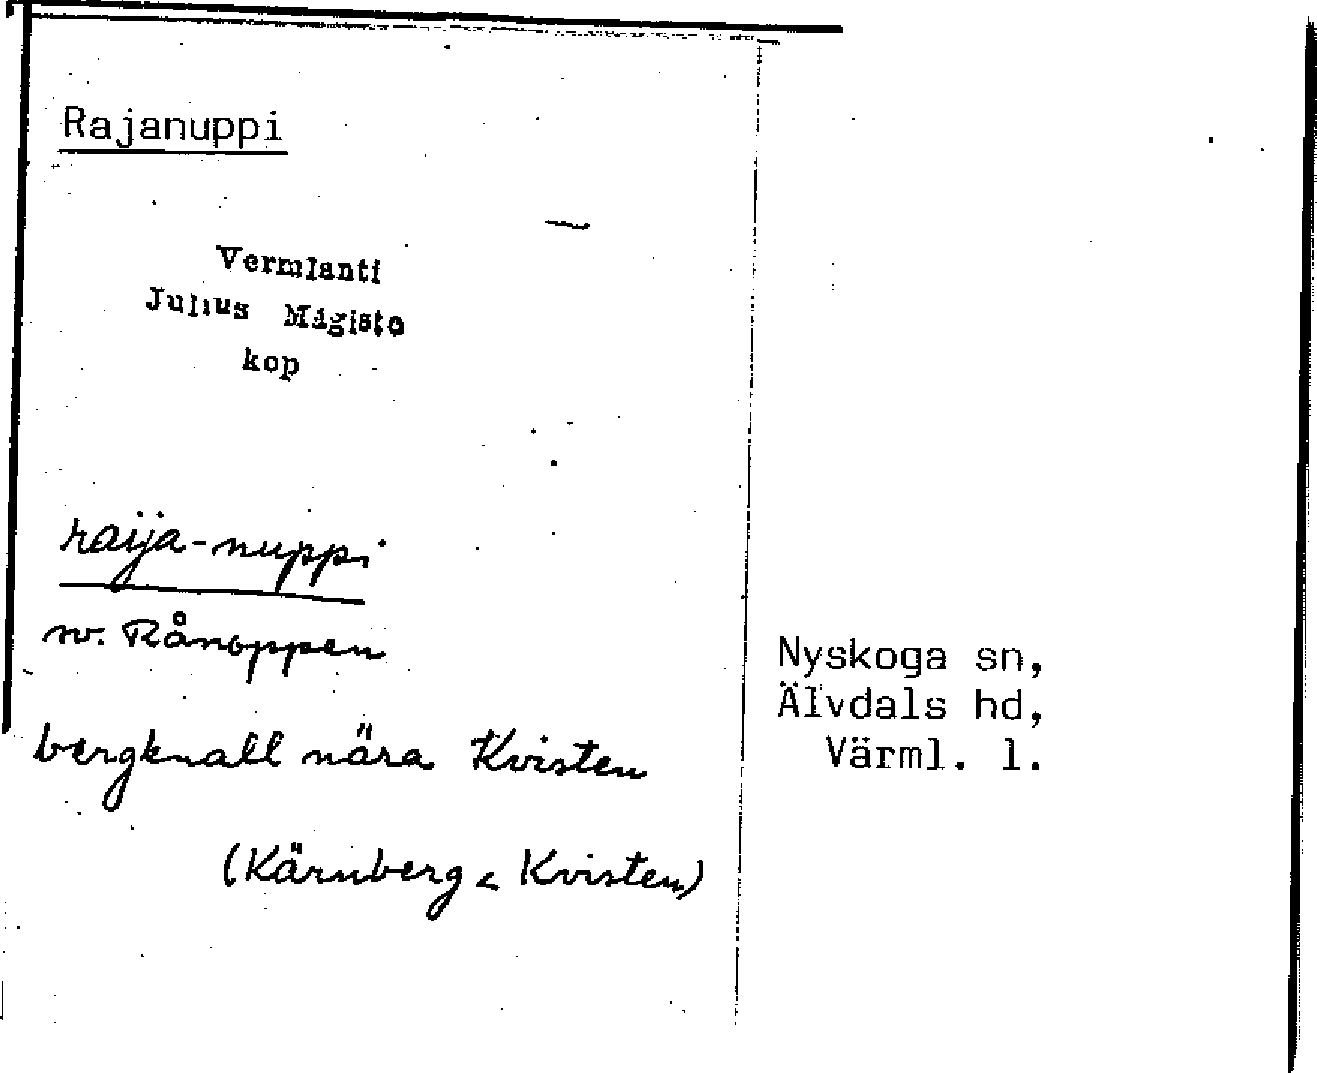 Rajanuppi
Vermlanti
Julius Mägiste
kop
raija-nuppi
rv. Rånoppen
bergknall nära Kvisten
(Kärnberg < Kvisten)
Nyskoga sn,
Älvdals hd,
Värml. l.